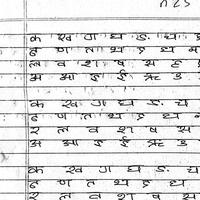 n25
क ख ग घ ङ च
ढ ण त थ द ध
ल व श ष स ह
अ आ इ ई ऋ उ
क ख ग घ ङ च
ढ ण त थ द ध
र ल व श ष स
अ आ इ ई ऋ उ
क ख ग घ ङ च
ढ ण त थ द ध
र ल व श ष स